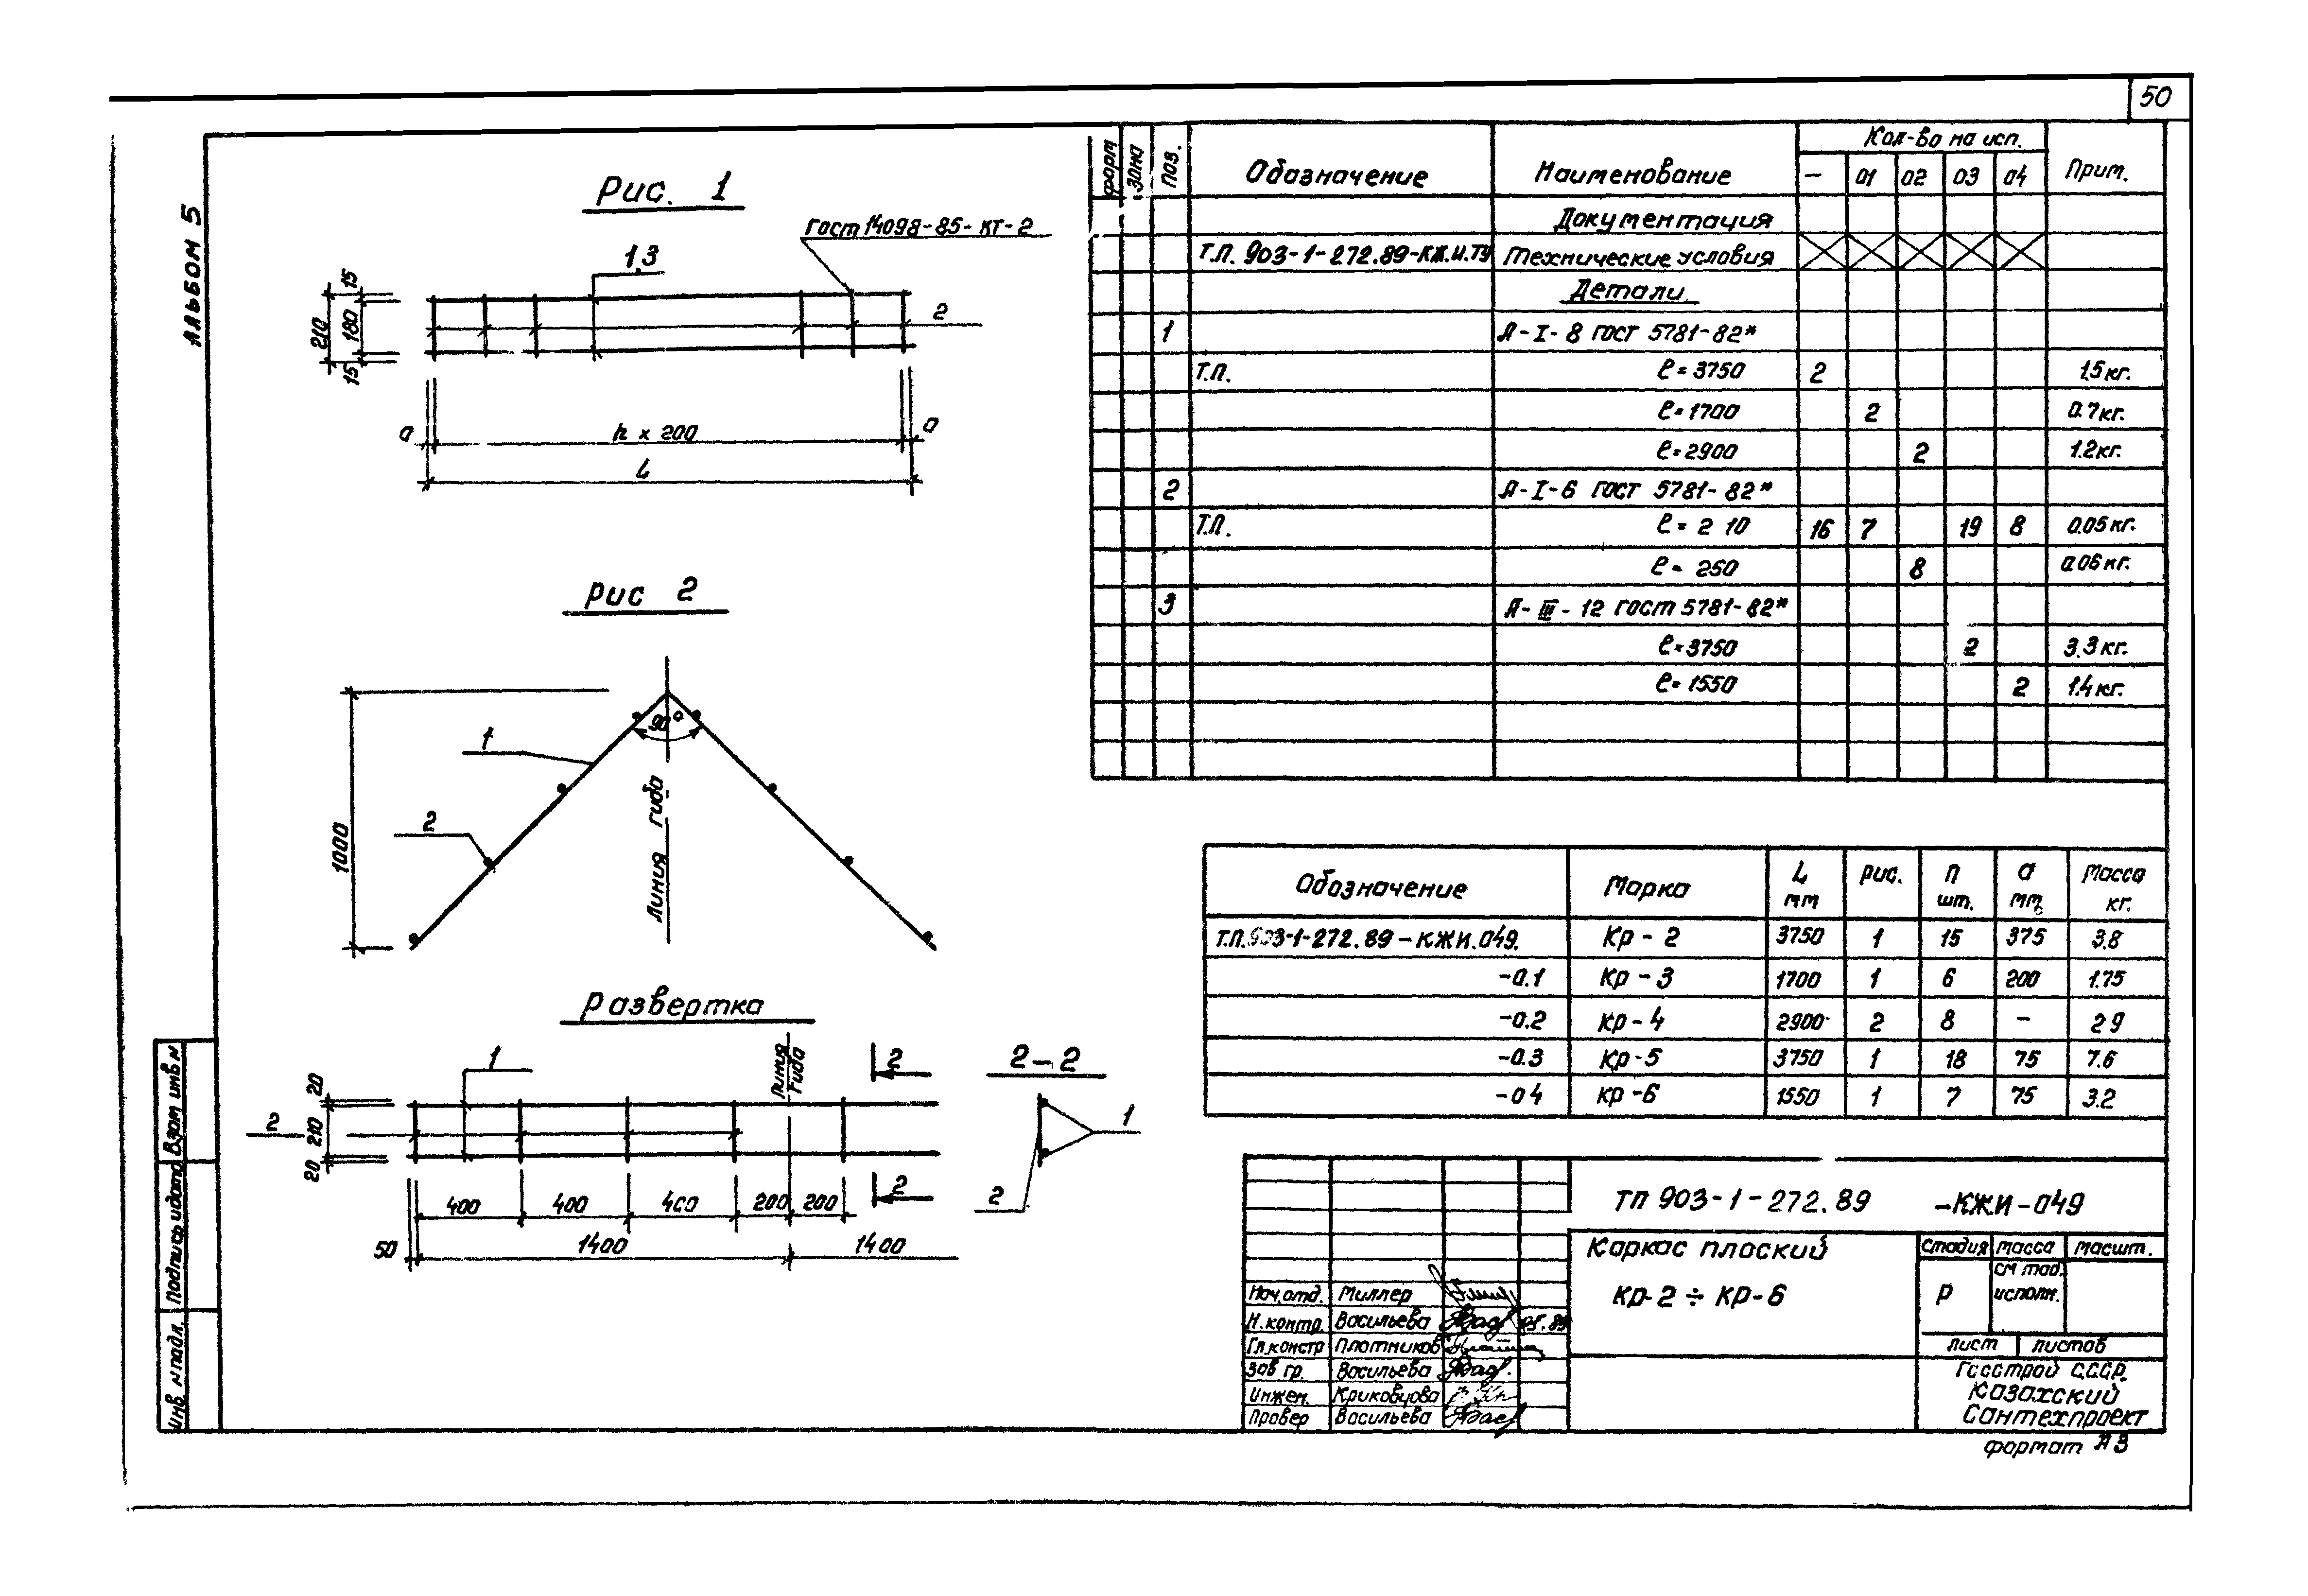 50
Альбом 5
Рис. 1
ГОСТ 14098-85-КТ-2
1,3
2
15
180
210
15
а
n х 200
а
L
Рис 2
90°
1
2
1000
Линия гиба
Развертка
1
2
20
210
20
Линия гиба
2
2
400
400
400
200
200
50
1400
1400
2-2
1
2
Форм
Зона
Поз.
Обозначение
Наименование
Кол-во на исп.
Прим.
— 01 02 03 04
Документация
Т.П. 903-1-272.89-КЖ.И.ТУ Технические условия
Детали
1 А-I-8 ГОСТ 5781-82*
Т.П. ℓ=3750 2 1.5кг.
ℓ=1700 2 0.7кг.
ℓ=2900 2 1.2кг.
2 А-I-6 ГОСТ 5781-82*
Т.П. ℓ= 2 10 16 7 19 8 0.05кг.
ℓ= 250 8 0.06кг.
3 А-III-12 ГОСТ 5781-82*
ℓ=3750 2 3.3кг.
ℓ=1550 2 1.4кг.
Обозначение Марка L мм Рис. П шт. а мм Масса кг.
Т.П.903-1-272.89-КЖИ.049. Кр-2 3750 1 15 375 3.8
-0.1 Кр-3 1700 1 6 200 1.75
-0.2 Кр-4 2900 2 8 – 2 9
-0.3 Кр-5 3750 1 18 75 7.6
-0 4 Кр-6 1550 1 7 75 3.2
ТП 903-1-272.89 -КЖИ-049
Каркас плоский
КР-2 ÷ КР-6
Стадия Масса Масшт.
Р
см таб. исполн.
Лист Листов
Госстрой С.С.С.Р.
Казахский
Сантехпроект
Формат А3
Нач.отд. Миллер
Н.контр. Васильева
Гл.констр Плотников
Зав гр. Васильева
Инжен. Криковцова
Провер Васильева
Взам инв N
Подпись и дата
Инв N подл.